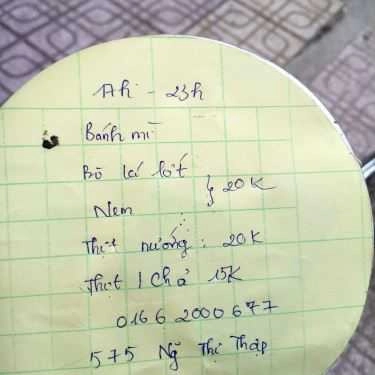 17h - 23h
Bánh mì
Bò lá lốt
Nem } 20K
Thịt nướng : 20K
Thịt / Chả 15K
0166 2000 677
575 Ng Thị Thập